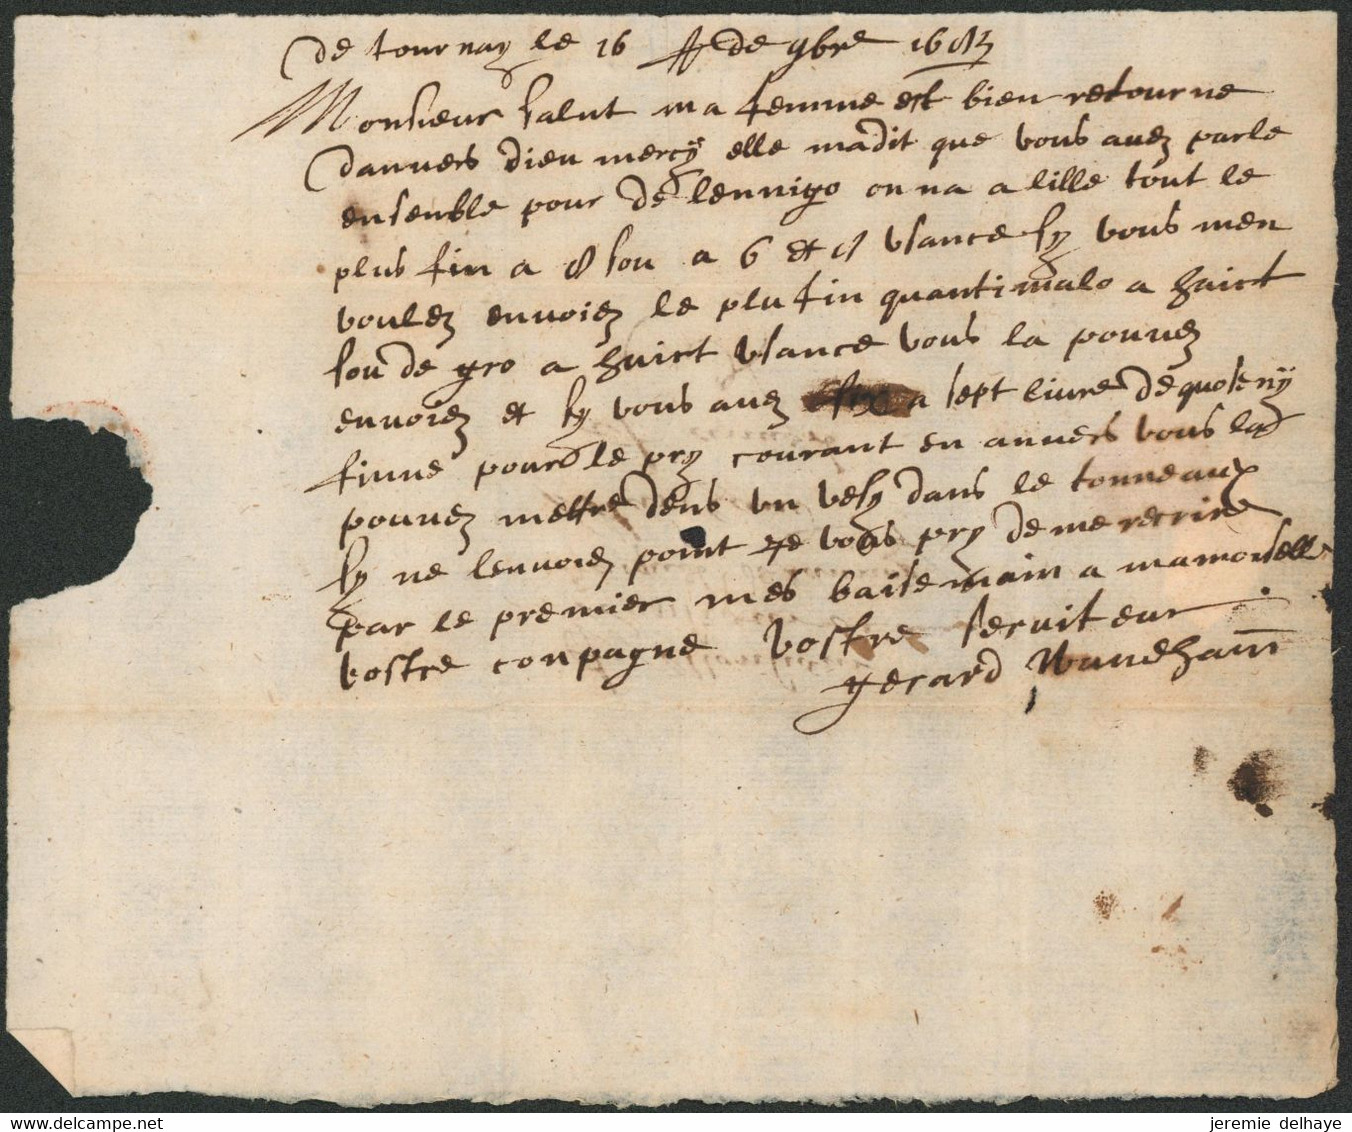 de tournay le 16 de 9bre
Monsieur salut ma femme est bien retourne
danvers dieu mercy elle madit que vous avez parle
ensenble pour de lennigo on na a lille tout le
plus fin a 8 sou a 6 et usance sy vous men
voulez envoiez le plu fin quantimalo a huict
sou de gro a huict usance vous la pouvez
envoiez et sy vous avez a sept livre de
finne pour le pry courant en anvers vous la
pouvez mettre dens un vesy dans le tonneaux
sy ne lenvoiez point je vous pry de me recrire
par le premier mes baisemain a mamoiselle
vostre conpagne vostre serviteur
gerard
jeremie delhaye